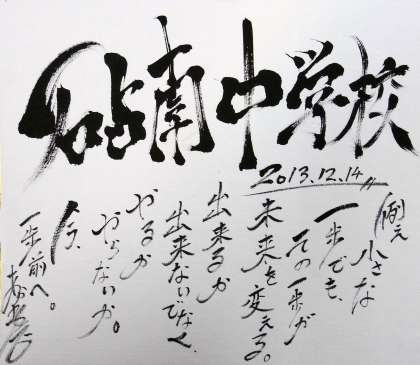 砧南中学校
2013.12.14
例え
小さな
一歩でも、
その一歩が
未来を変える。
出来るか
出来ないでなく、
やるか
やらないか。
今、
一歩前へ。